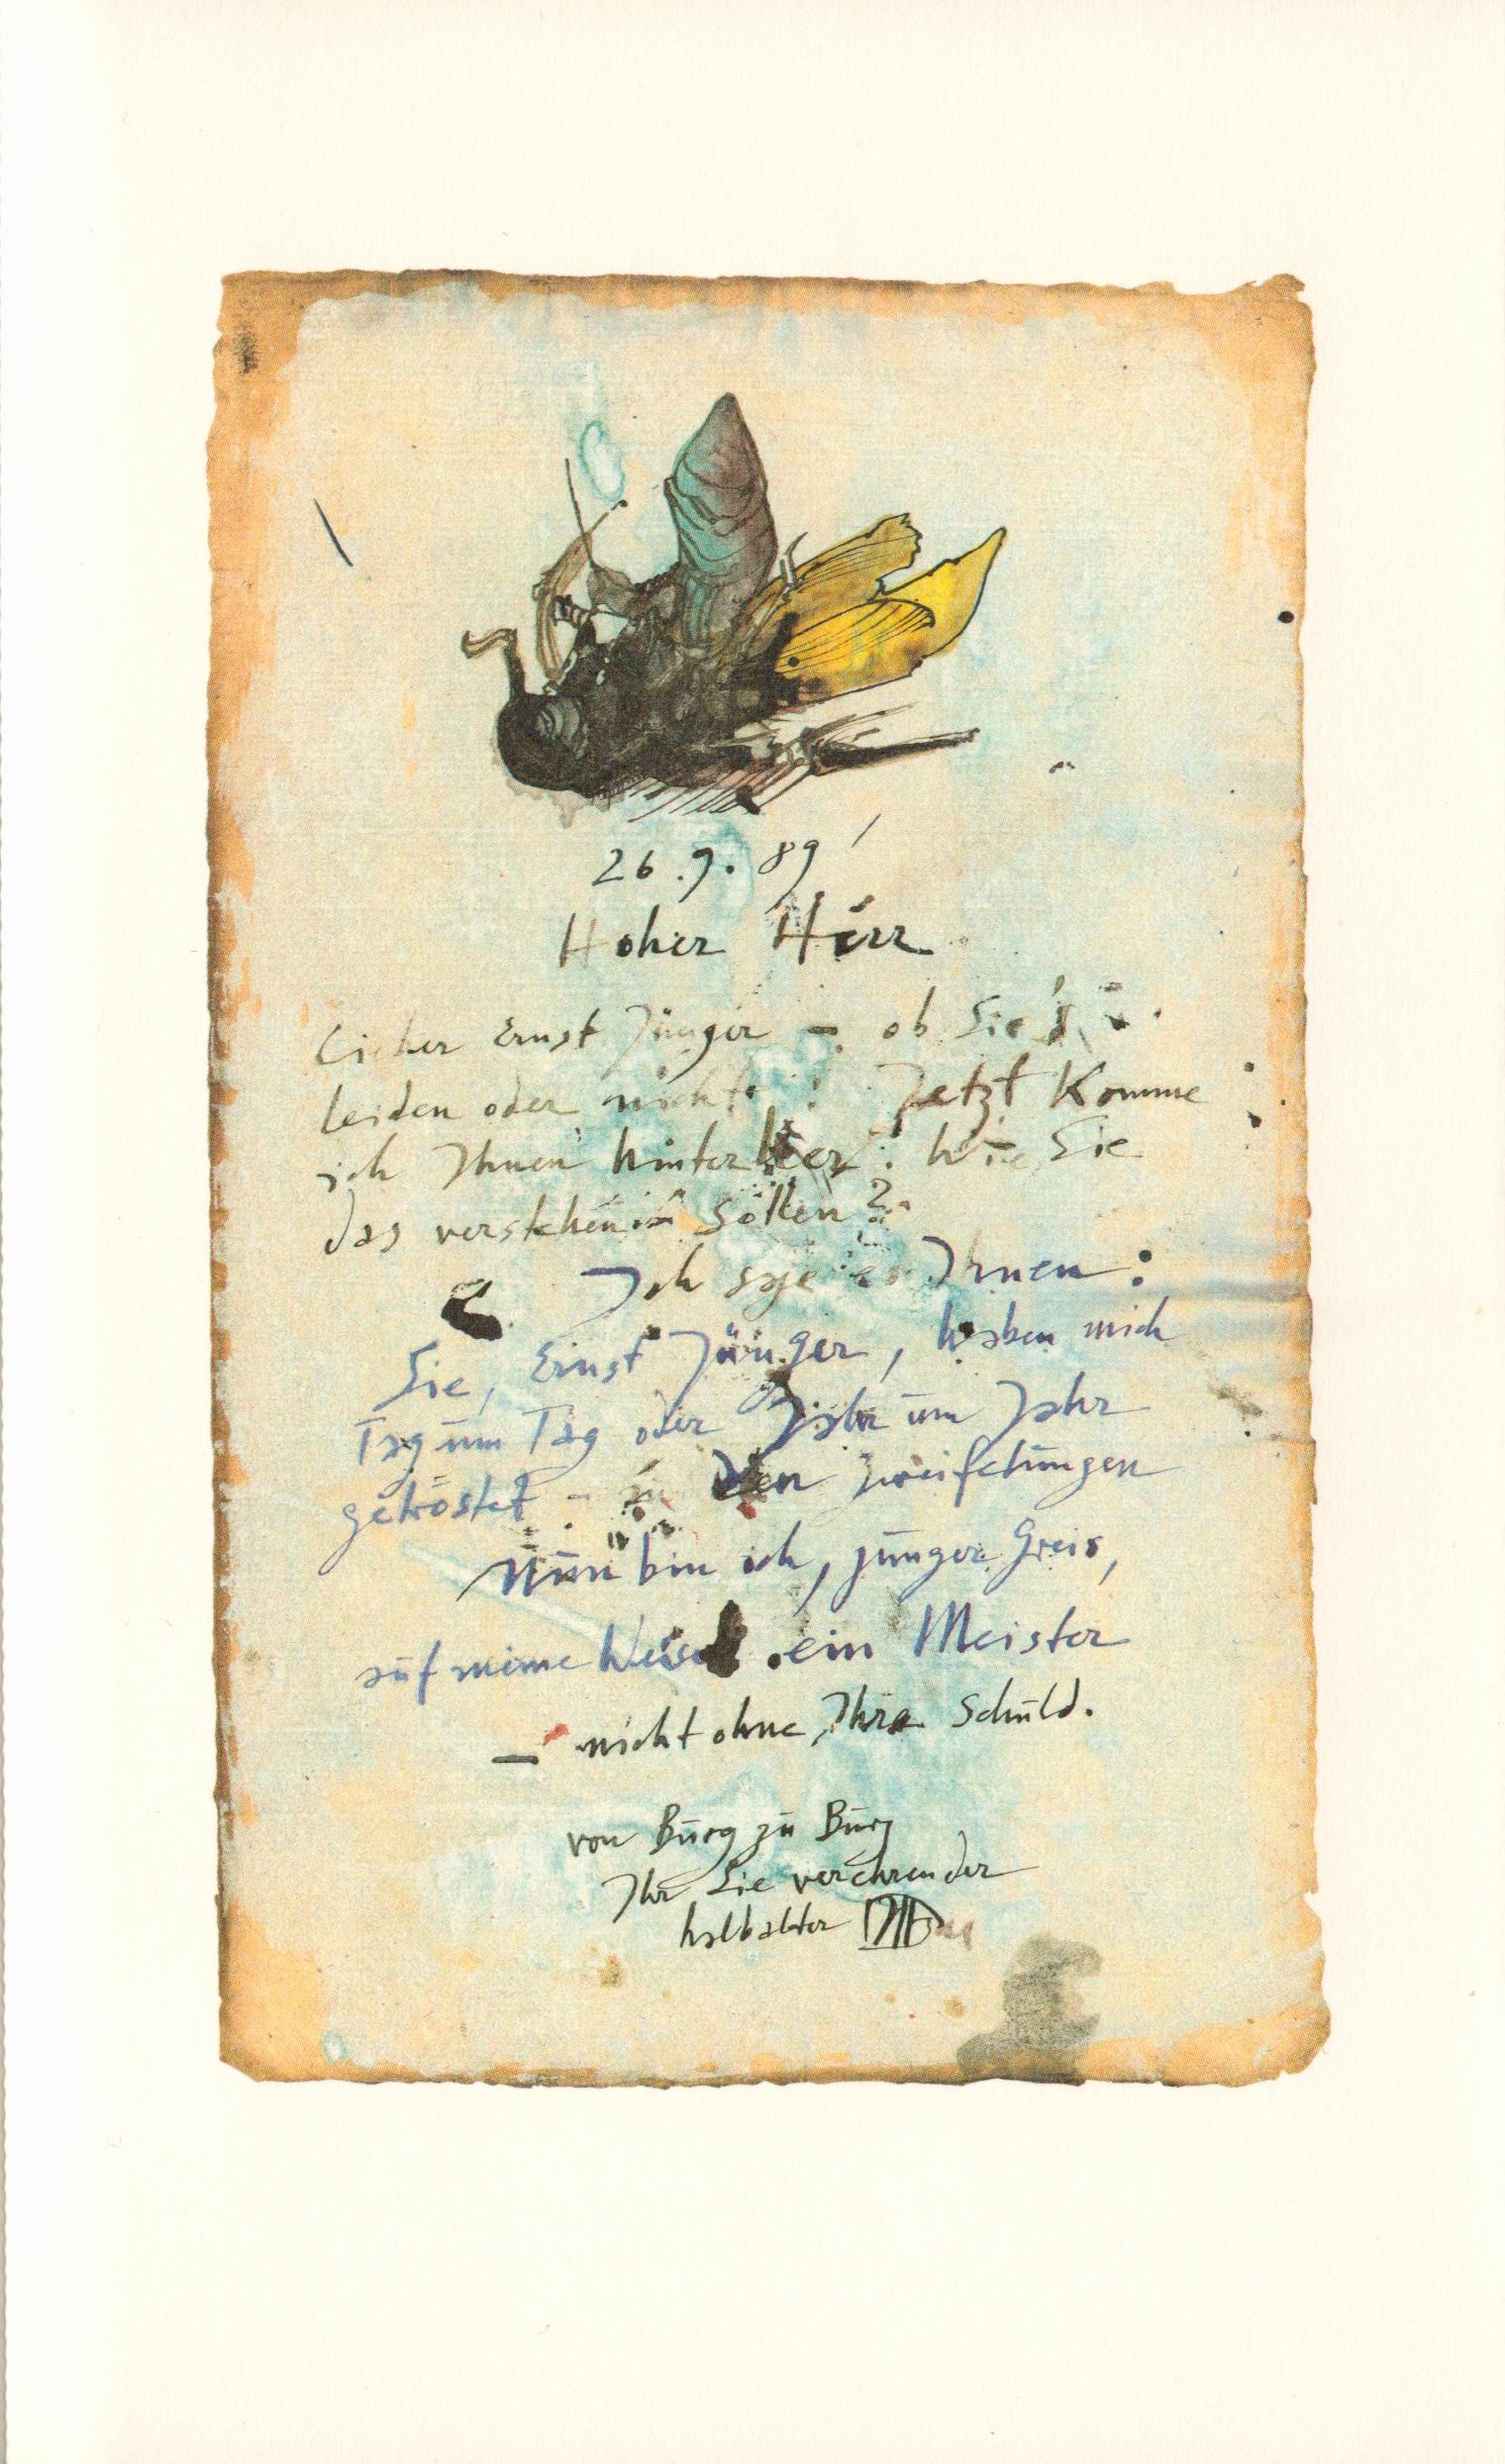 26.9.89
Hoher Herr
Lieber Ernst Jünger – ob Sie's
leiden oder nicht! Jetzt Komme
ich Ihnen hinterher. Wie Sie
das verstehen sollen?
Ich sage es Ihnen:
Sie, Ernst Jünger, haben mich
Tag um Tag oder Jahr um Jahr
getröstet – in den zweifelungen
Nun bin ich, junger Greis,
auf meine Weise ein Meister
– nicht ohne Ihre Schuld.
von Burg zu Burg
Ihr Sie verehrender
halbalter